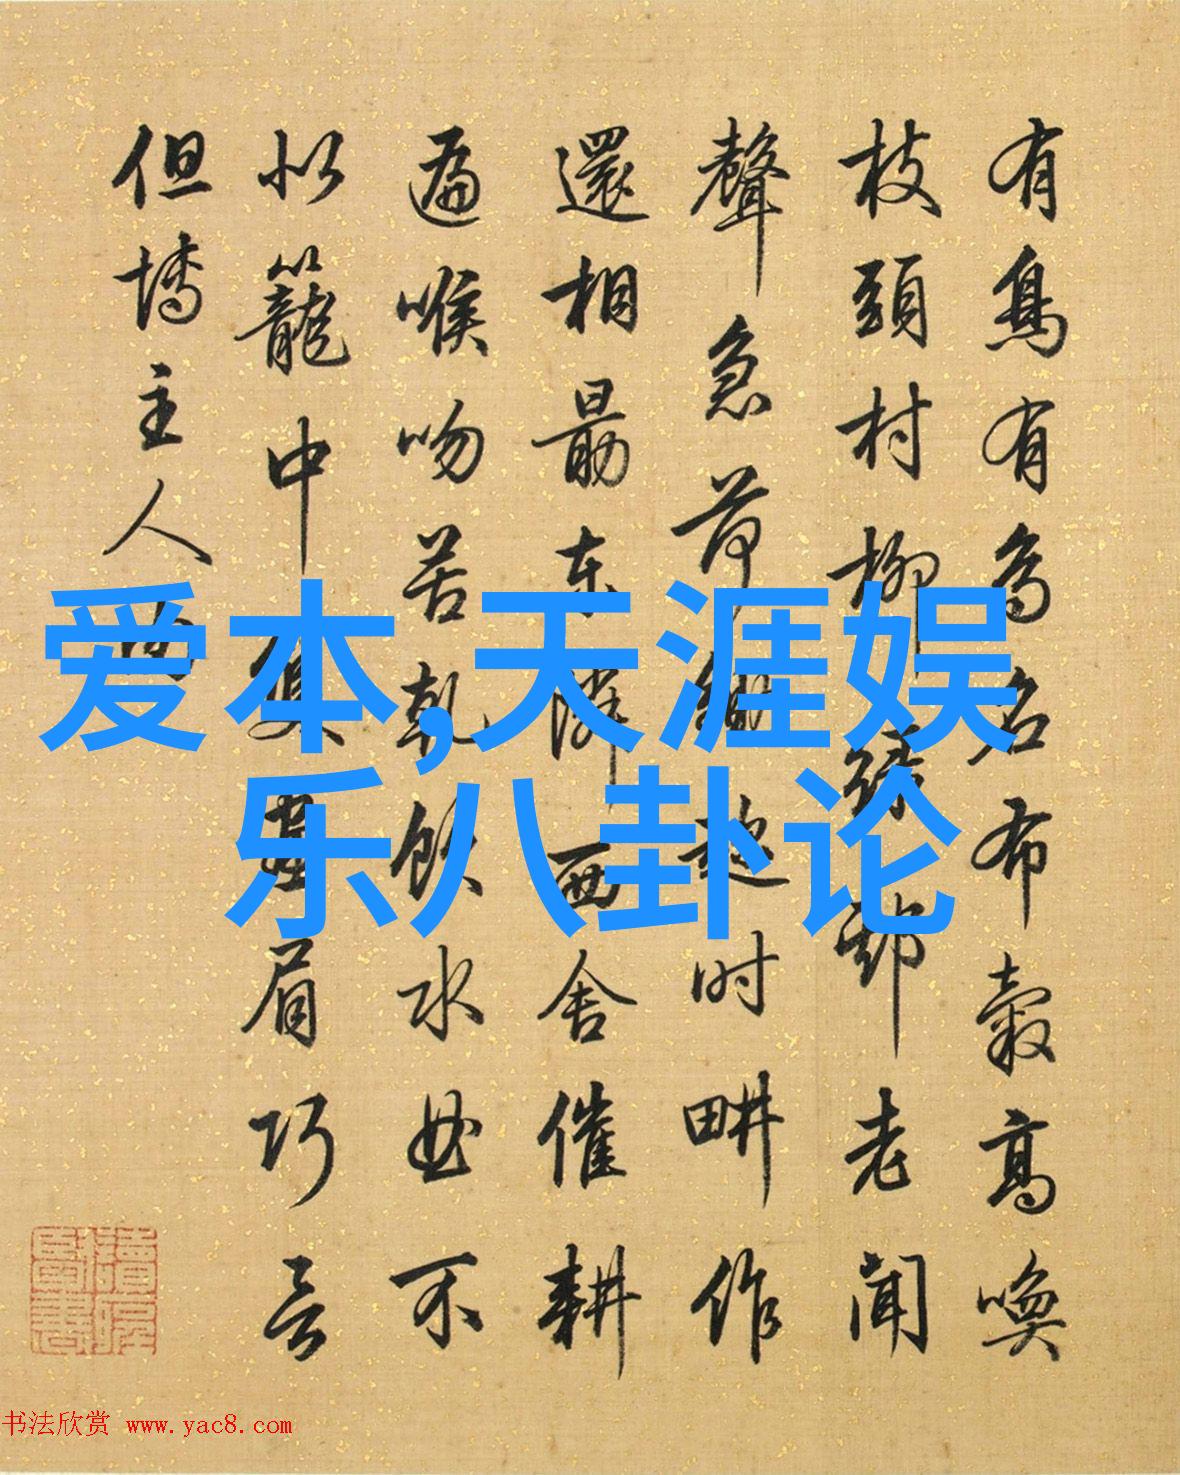 有鳥有鳥名布穀高喚
枝頭村柳緑老聞
聲急荷鋤趁時畊作
還相勗東隣西舍催耕
遍喉吻苦乾飲水不
似籠中畫眉巧言
但博主人
爱本,天涯娱
乐八卦论
书法欣赏 www.yac8.com